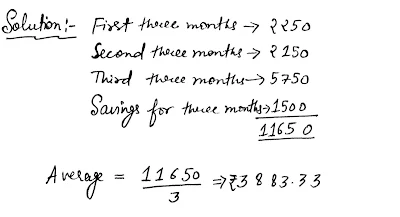 Solution:- First three months → 2250
Second three months → 2150
Third three months → 5750
Savings for three months → 1500
11650
Average = 11650/3 ⇒ ₹3883.33